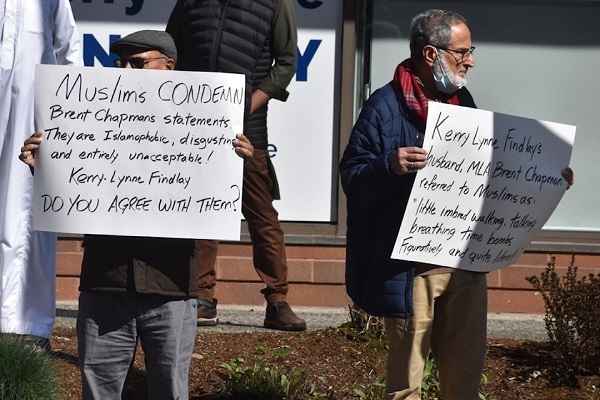 Muslim's CONDEMN
Brent Chapmans statements.
They are Islamophobic, disgusting
and entirely unacceptable!
Kerry-Lynne Findlay
DO YOU AGREE WITH THEM?
Kerry Lynne Findlay's
husband, MLA Brent Chapman
referred to Muslims as:
"little imbred walking, talking
breathing time bombs
Figuratively and quite